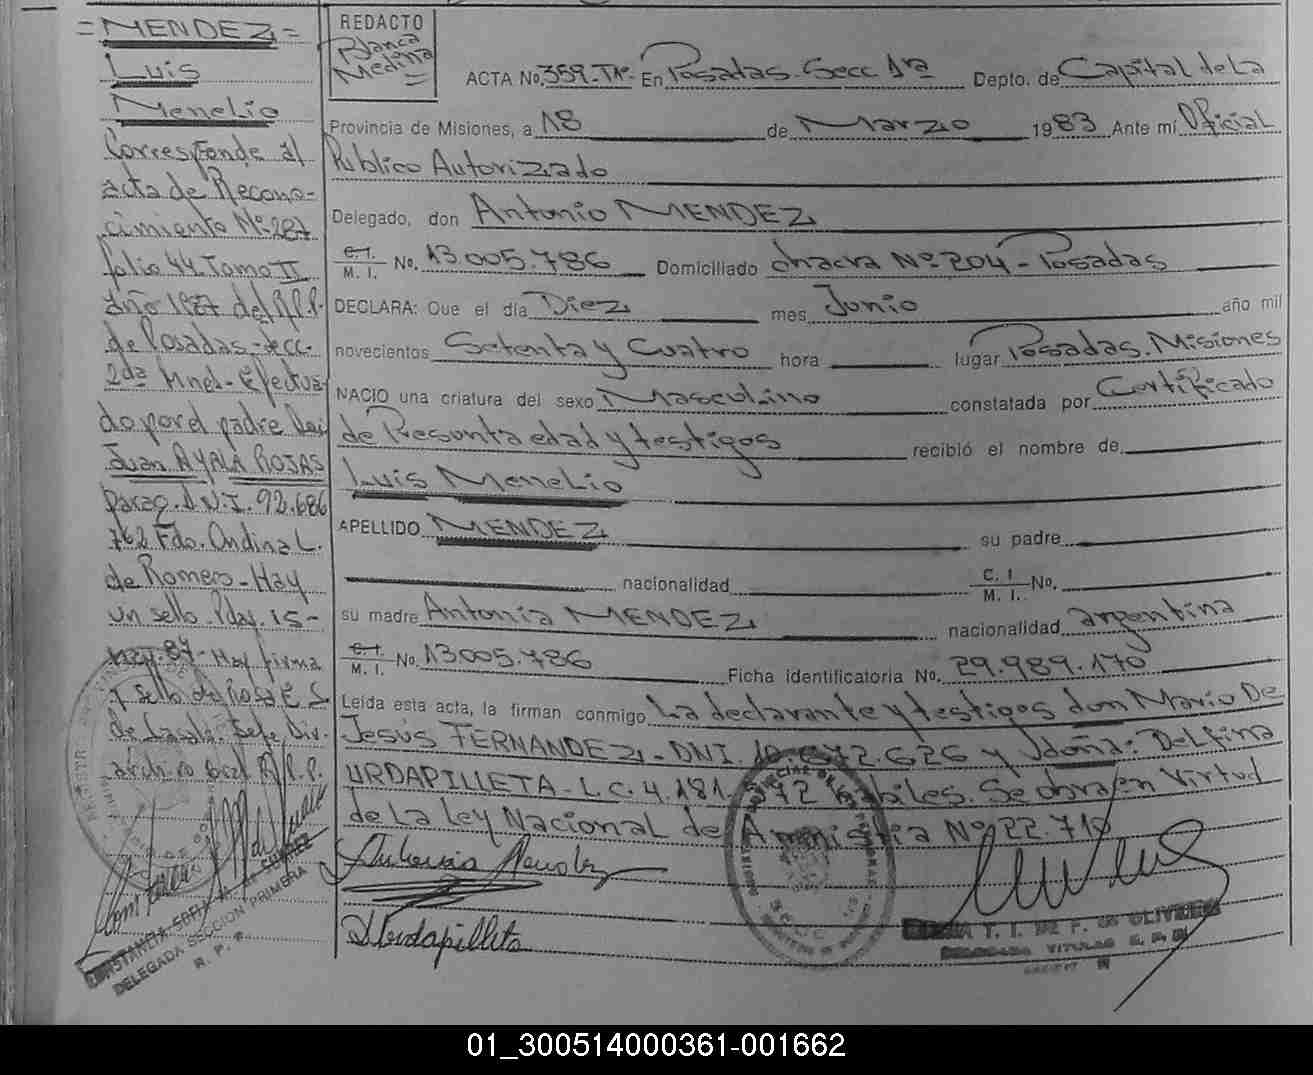 =MENDEZ=
Luis
Menelio
Corresponde al
acta de Recono-
cimiento Nº 287
folio 44 Tomo II
año 1987 del R.P.P.
de Posadas-secc-
2da Mnes-Efectua-
do por el padre Don
Juan AYALA ROJAS
parag. D.N.I. 92.686
762 Fdo. Ondina L.
de Romero-Hay
un sello. Pdas. 15-
87-Hay firma
y sello de Rosa E. S.
de Jefe Div.
archivo Gral R.P.P.
CONSTANCIA SOFIA M. de SUAREZ
DELEGADA SECCION PRIMERA
R. P. P.
REDACTO
Blanca
Medina
=
ACTA No. 359-Tº- En Posadas-Secc 1ra Depto. de Capital de La
Provincia de Misiones, a 18 de Marzo 1983 Ante mí Oficial
Publico Autorizado
Delegado, don Antonio MENDEZ
C.I. M. I. No. 13 005.786 Domiciliado chacra Nº 204-Posadas
DECLARA: Que el día Diez mes Junio año mil
novecientos Setenta y Cuatro hora lugar Posadas. Misiones
NACIO una criatura del sexo Masculino constatada por Certificado
de Presunta edad y testigos recibió el nombre de
Luis Menelio
APELLIDO MENDEZ su padre
nacionalidad C. I. M. I. No.
su madre Antonia MENDEZ nacionalidad argentina
C.I. M. I. No. 13005.786 Ficha identificatoria No. 29.989.170
Leída esta acta, la firman conmigo La declarante y testigos don Mario De
Jesús FERNANDEZ-DNI. 10.672.626 y doña: Delfina
URDAPILLETA-L.C. 4.181. 72 habiles. Se obra en Virtud
de La Ley Nacional de Amnistia Nº 22.710
Antonia Mendez
D Urdapilleta
T. I. DE F. DE OLIVERA
DELEGADA TITULAR R. P. P.
01_300514000361-001662